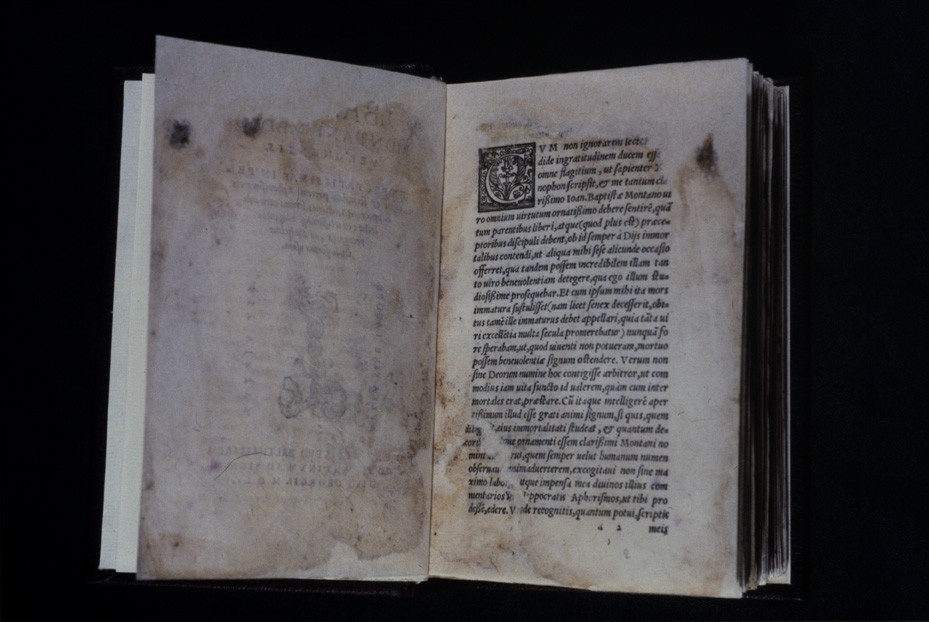 CVM non ignorarem lecto
dide ingratitudinem ducem ess
omne flagitium, ut sapienter
nophon scripsit, & me tantum cla
rißimo Ioan. Baptistæ Montano ui
ro omnium uirtutum ornatißimo debere sentirē, quā
tum parentibus liberi, atque (quod plus est) præce-
ptoribus discipuli debent, ob id semper à Dijs immor
talibus contendi, ut aliqua mihi sese alicunde occasio
offerret, qua tandem possem incredibilem illam tan
to uiro beneuolentiam detegere, qua ego illum stu-
diosißime prosequebar. Et cum ipsum mihi ita mors
immatura sustulisset (nam licet senex decesserit, obi-
tus tamē ille immaturus debet appellari, quia tāta ui
ri excellētia multa secula promerebatur) nunquā fo
re sperabam, ut, quod uiuenti non potueram, mortuo
possem beneuolentiæ signum ostendere. Verum non
sine Deorum numine hoc contigisse arbitror, ut com
modius iam uita functo id ualerem, quàm cum inter
mortales erat, præstare. Cū itaque intelligerē aper
tißimum illud esse grati animi signum, si quis, quem
eius immortalitati studeat, & quantum de-
ornamenti essem clarißimi Montani no
quem semper uelut humanum numen
obserua nimaduerterem, excogitaui non sine ma
ximo labo que impensa mea diuinos illius com
mentarios ppocratis Aphorismos, ut tibi pro
dessē, edere. V de recognitis, quantum potui, scriptis
meis